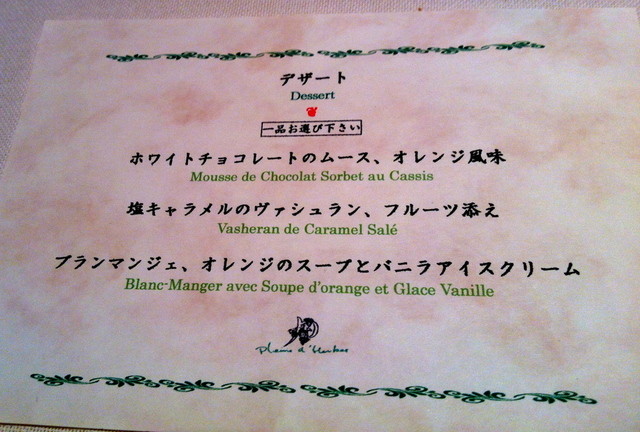 デザート
Dessert
一品お選び下さい
ホワイトチョコレートのムース、オレンジ風味
Mousse de Chocolat Sorbet au Cassis
塩キャラメルのヴァシュラン、フルーツ添え
Vasheran de Caramel Salé
ブランマンジェ、オレンジのスープとバニラアイスクリーム
Blanc-Manger avec Soupe d'orange et Glace Vanille